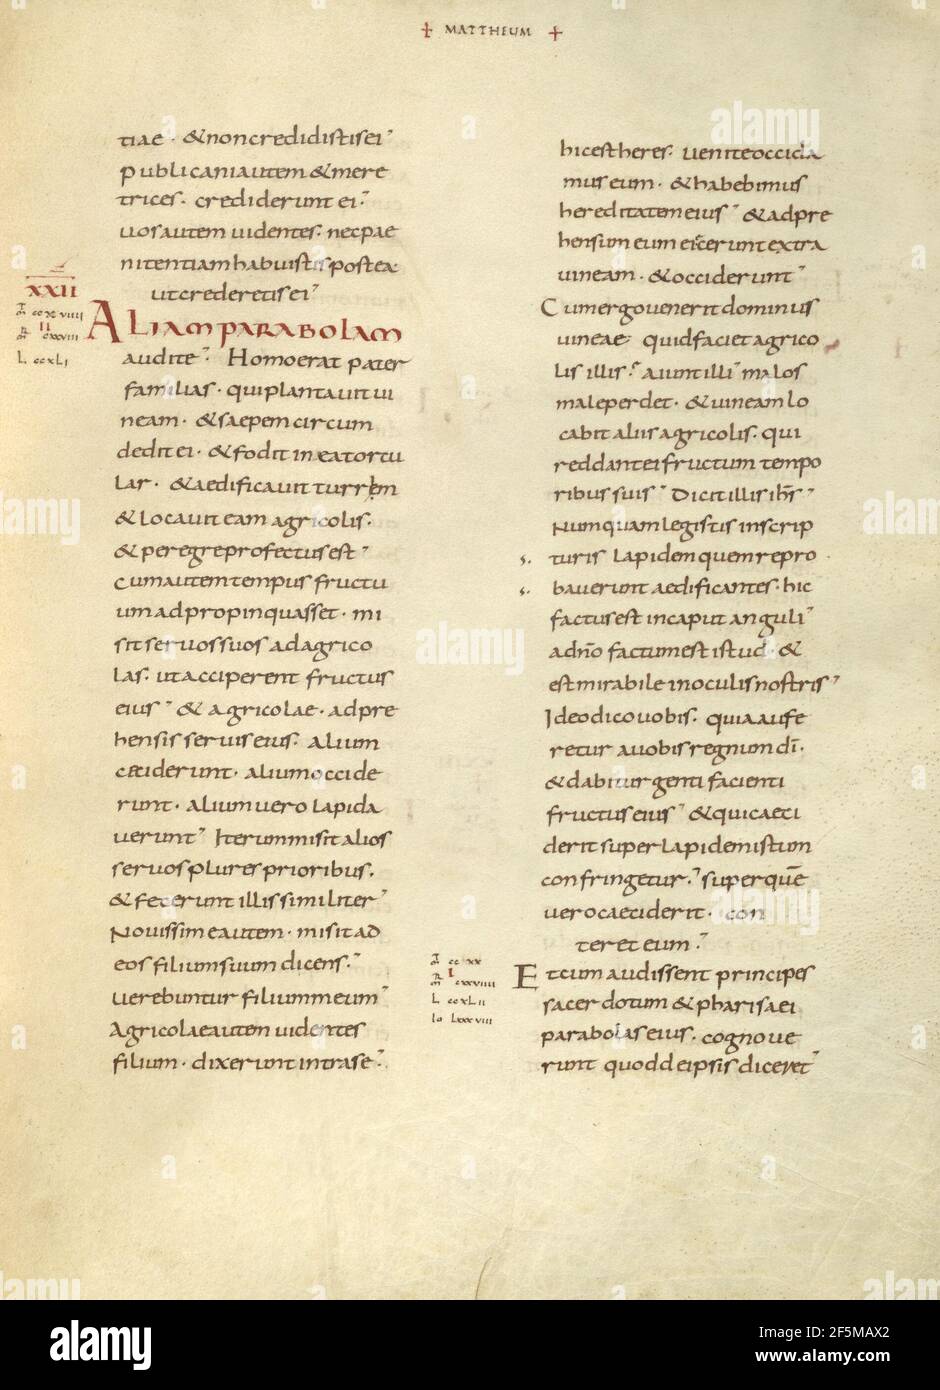 + MATTHEUM +
tiae · & non credidistis ei
publicani autem & mere
trices · crediderunt ei
uos autem uidentes · nec pae
nitentiam habuistis postea
ut crederetis ei
XXII
ALIAM PARABOLAM
L ccxLI
audite Homo erat pater
familias · qui plantauit ui
neam · & saepem circum
dedit ei · & fodit in ea tortu
lar · & aedificauit turrem
& locauit eam agricolis ·
& peregre profectus est
Cum autem tempus fructu
um adpropinquasset · mi
sit seruos suos ad agrico
las · ut acciperent fructus
eius & agricolae · adpre
hensis seruis eius · alium
caeciderunt · alium occide
runt · alium uero lapida
uerunt Iterum misit alios
seruos plures prioribus ·
& fecerunt illis similiter
Nouissime autem · misit ad
eos filium suum dicens
uerebuntur filium meum
Agricolae autem uidentes
filium · dixerunt intra se
hic est heres · uenite occida
mus eum · & habebimus
hereditatem eius & adpre
hensum eum eiecerunt extra
uineam · & occiderunt
Cum ergo uenerit dominus
uineae quid faciet agrico
lis illis aiunt illi malos
male perdet · & uineam lo
cabit aliis agricolis · qui
reddant ei fructum tempo
ribus suis Dicit illis ihs
Numquam legistis in scrip
turis lapidem quem repro
bauerunt aedificantes · hic
factus est in caput anguli
a dno factum est istud · &
est mirabile in oculis nostris
Ideo dico uobis · quia aufe
retur a uobis regnum di ·
& dabitur genti facienti
fructus eius & qui caeci
derit super lapidem istum
confringetur super quē
uero caeciderit · con
teret eum
L ccxLII
Io Lxxxviii
Et cum audissent principes
sacerdotum & pharisaei
parabolas eius · cognoue
runt quod de ipsis diceret
alamy
Image ID: 2F5MAX2
www.alamy.com